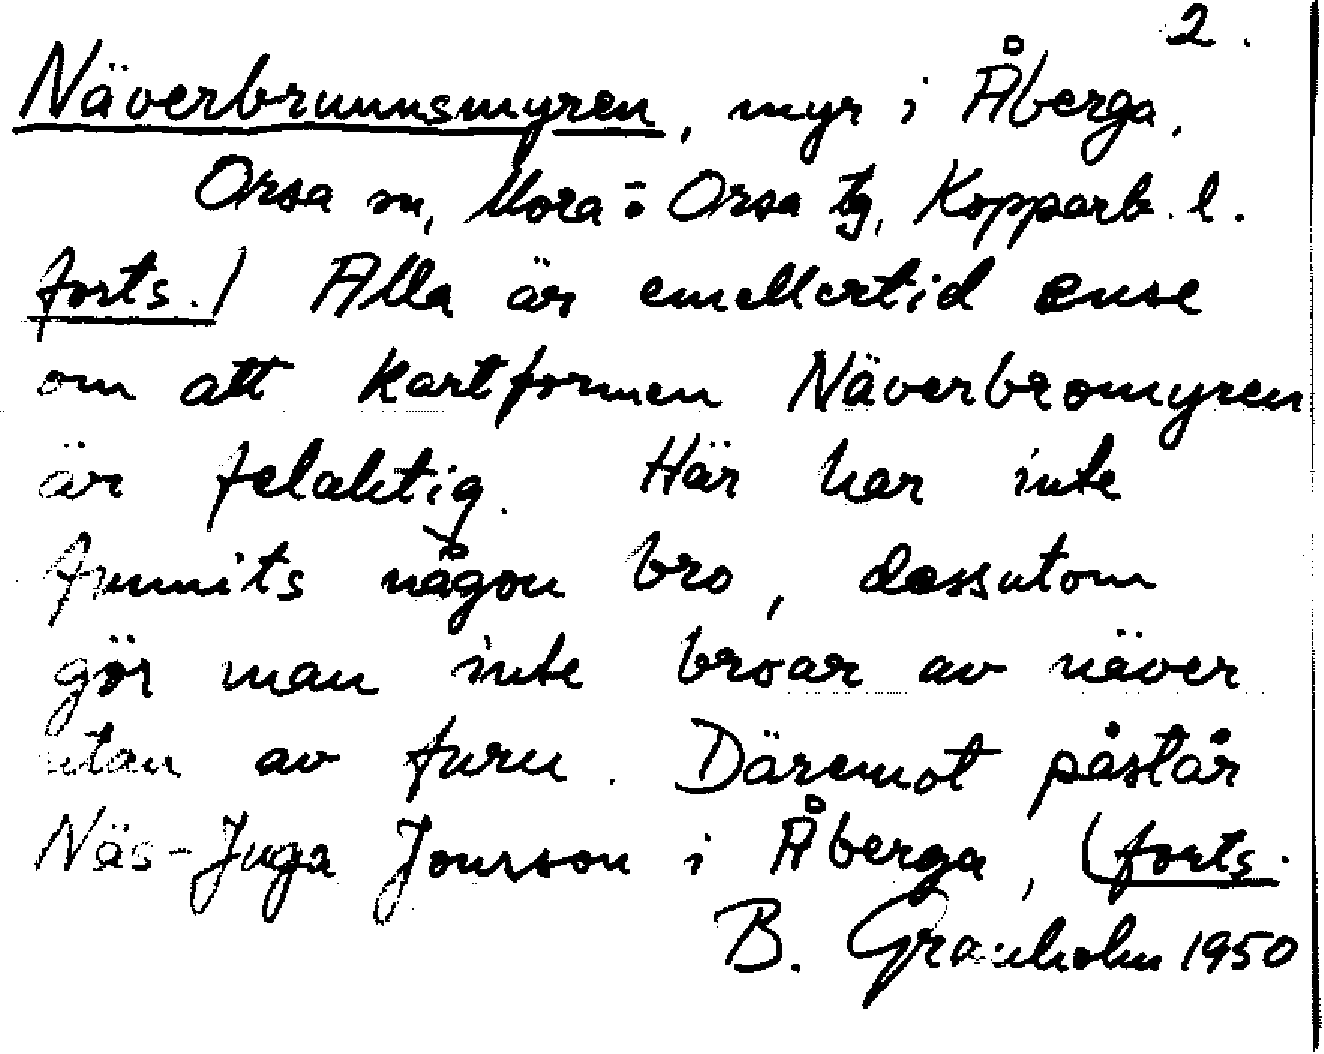 2.
Näverbrunnsmyren, myr i Åberga,
Orsa sn, Mora o Orsa tg, Kopparb. l.
forts.) Alla är emellertid ense
om att kartformen Näverbromyren
är felaktig. Här har inte
funnits någon bro, dessutom
gör man inte broar av näver
utan av furu. Däremot påstår
Näs-Juga Jonsson i Åberga, (forts.
B. Granholm 1950